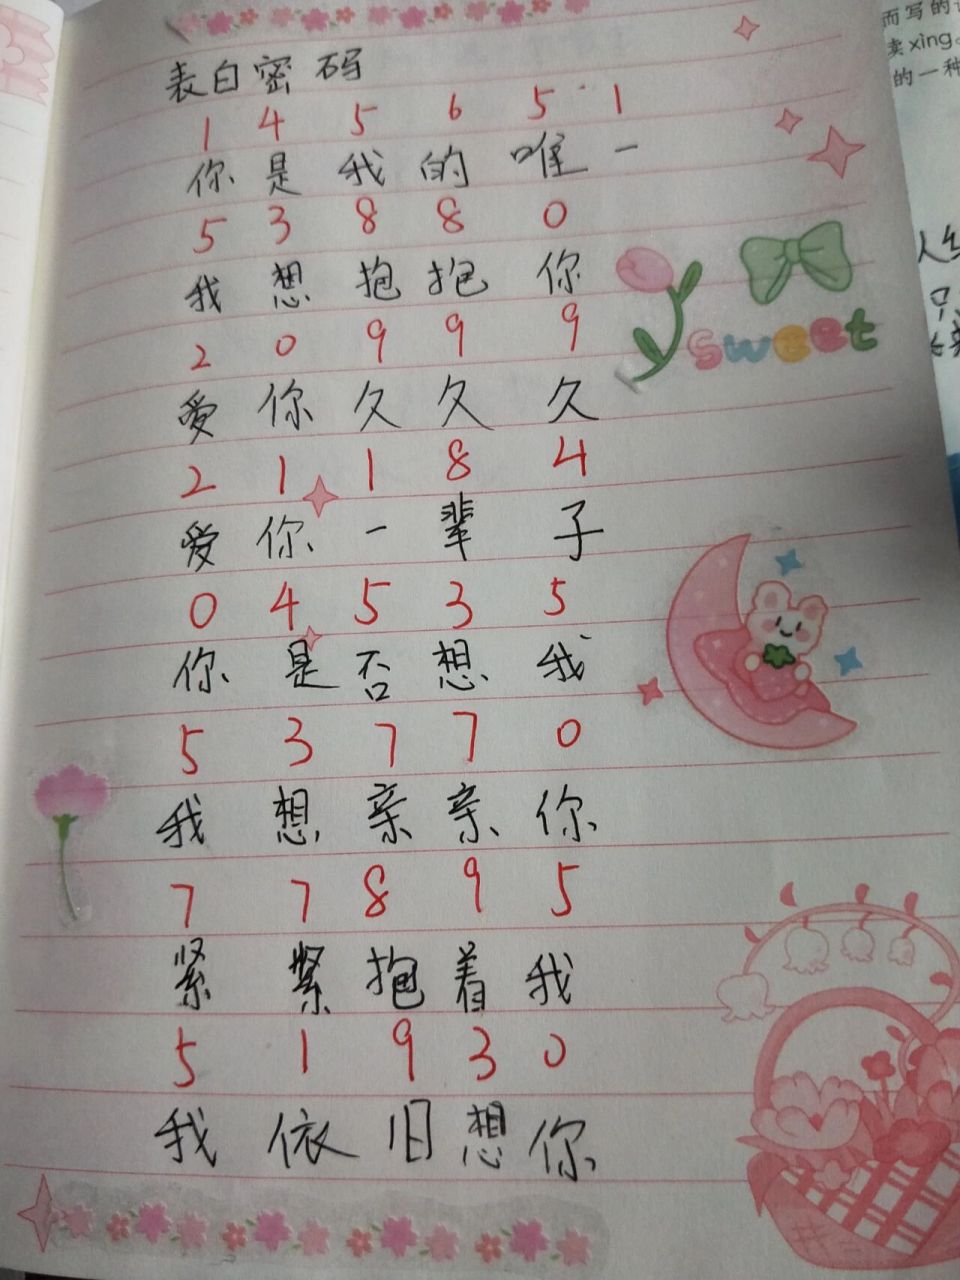 表白密码
1 4 5 6 5 1
你是我的唯一
5 3 8 8 0
我想抱抱你
2 0 9 9 9
爱你久久久
2 1 1 8 4
爱你一辈子
0 4 5 3 5
你是否想我
5 3 7 7 0
我想亲亲你
7 7 8 9 5
紧紧抱着我
5 1 9 3 0
我依旧想你
sweet
而写的
卖xing
的一种